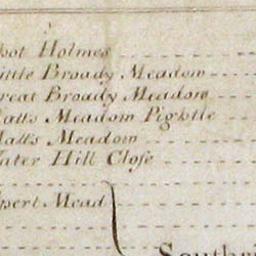 oot Holmes
ittle Broady Meadow
reat Broady Meadow
atts Meadow Pightle
atts Meadow
ater Hill Close
pert Mead
Southri